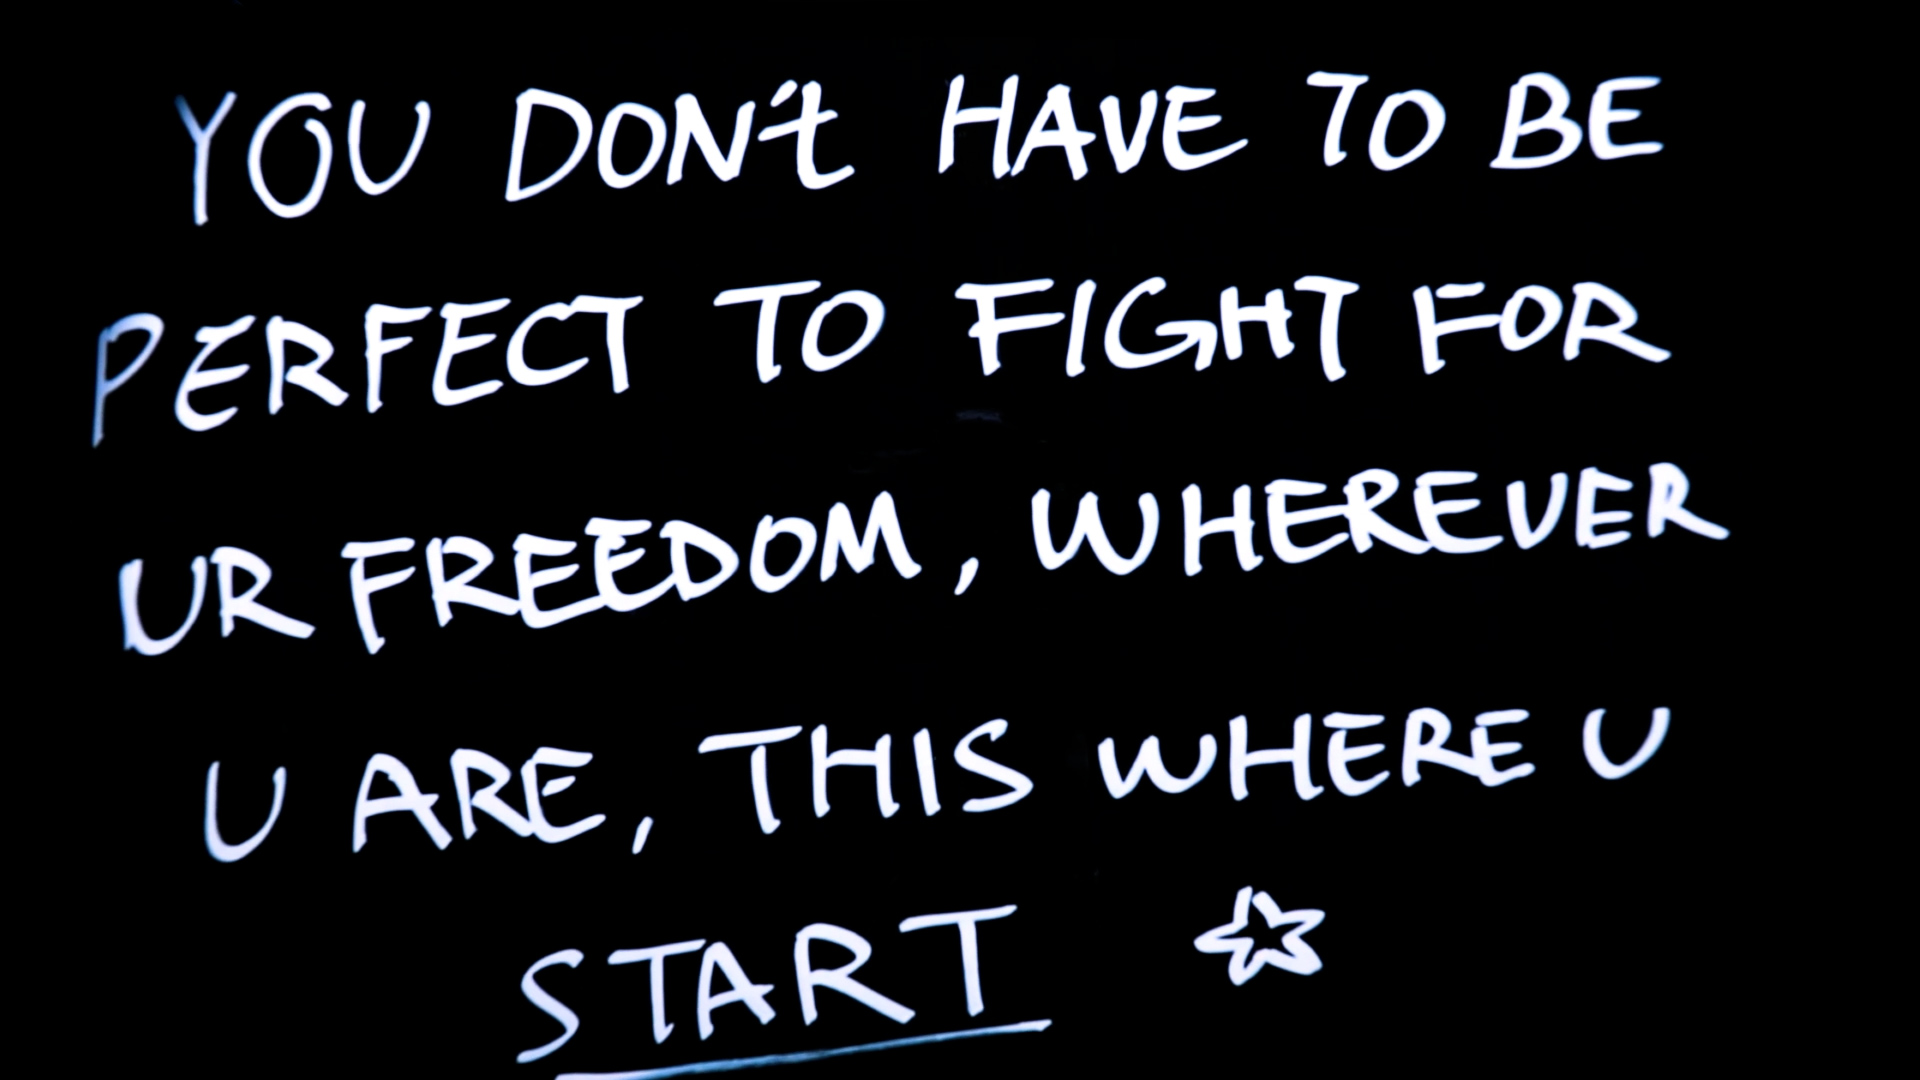 YOU DON't HAVE TO BE
PERFECT TO FIGHT FOR
UR FREEDOM, WHEREVER
U ARE, THIS WHERE U
START ☆